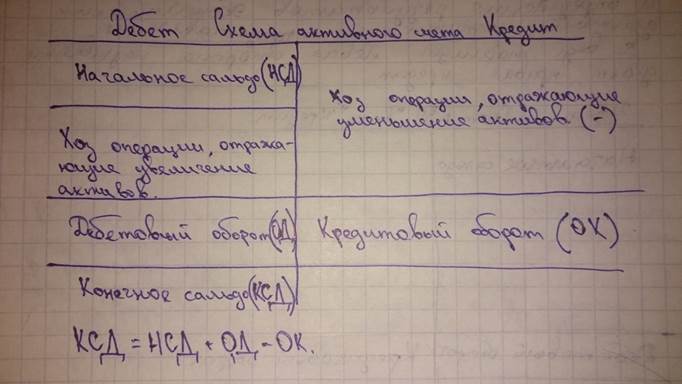 Дебет Схема активного счета Кредит
Начальное сальдо (НСД)
Хоз операции, отражающие
уменьшение активов (-)
Хоз операции, отража-
ющие увеличение
активов.
Дебетовый оборот (ОД) Кредитовый оборот (ОК)
Конечное сальдо (КСД)
КСД = НСД + ОД - ОК.